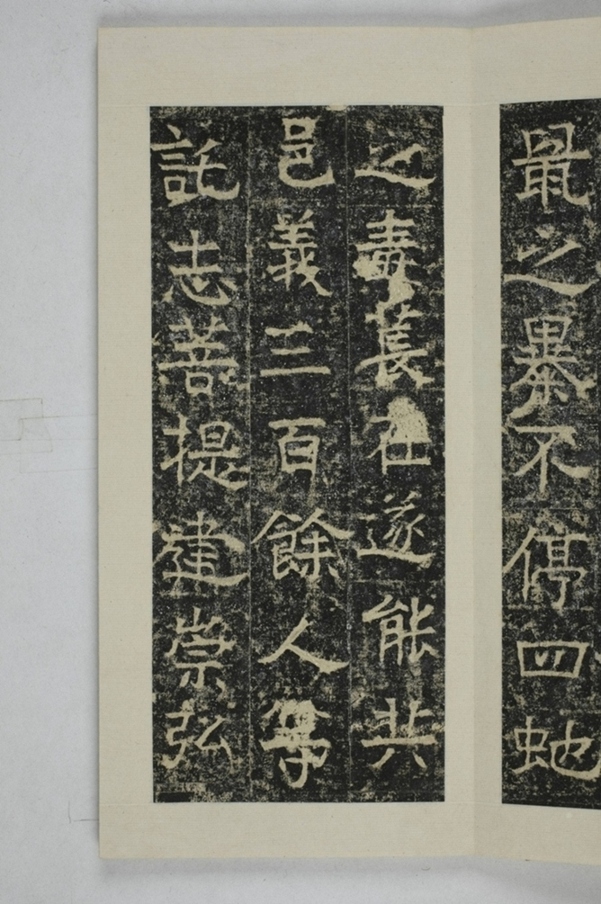 鼠之暴不停四虵
之毒萇在遂能共
邑義三百餘人等
託志菩提建崇弘